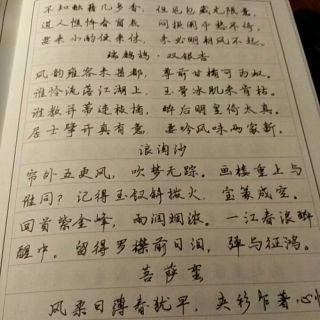 不知酝藉几多香，但见包藏无限意。
道人憔悴春窗底，闷损阑干愁不倚。
要来小酌便来休，未必明朝风不起。
瑞鹧鸪·双银杏
风韵雍容未甚都，尊前甘橘可为奴。
谁怜流落江湖上，玉骨冰肌未肯枯。
谁教并蒂连枝摘，醉后明皇倚太真。
居士擘开真有意，要吟风味两家新。
浪淘沙
帘外五更风，吹梦无踪。画楼重上与
谁同？记得玉钗斜拨火，宝篆成空。
回首紫金峰，雨润烟浓。一江春浪醉
醒中。留得罗襟前日泪，弹与征鸿。
菩萨蛮
风柔日薄春犹早，夹衫乍著心